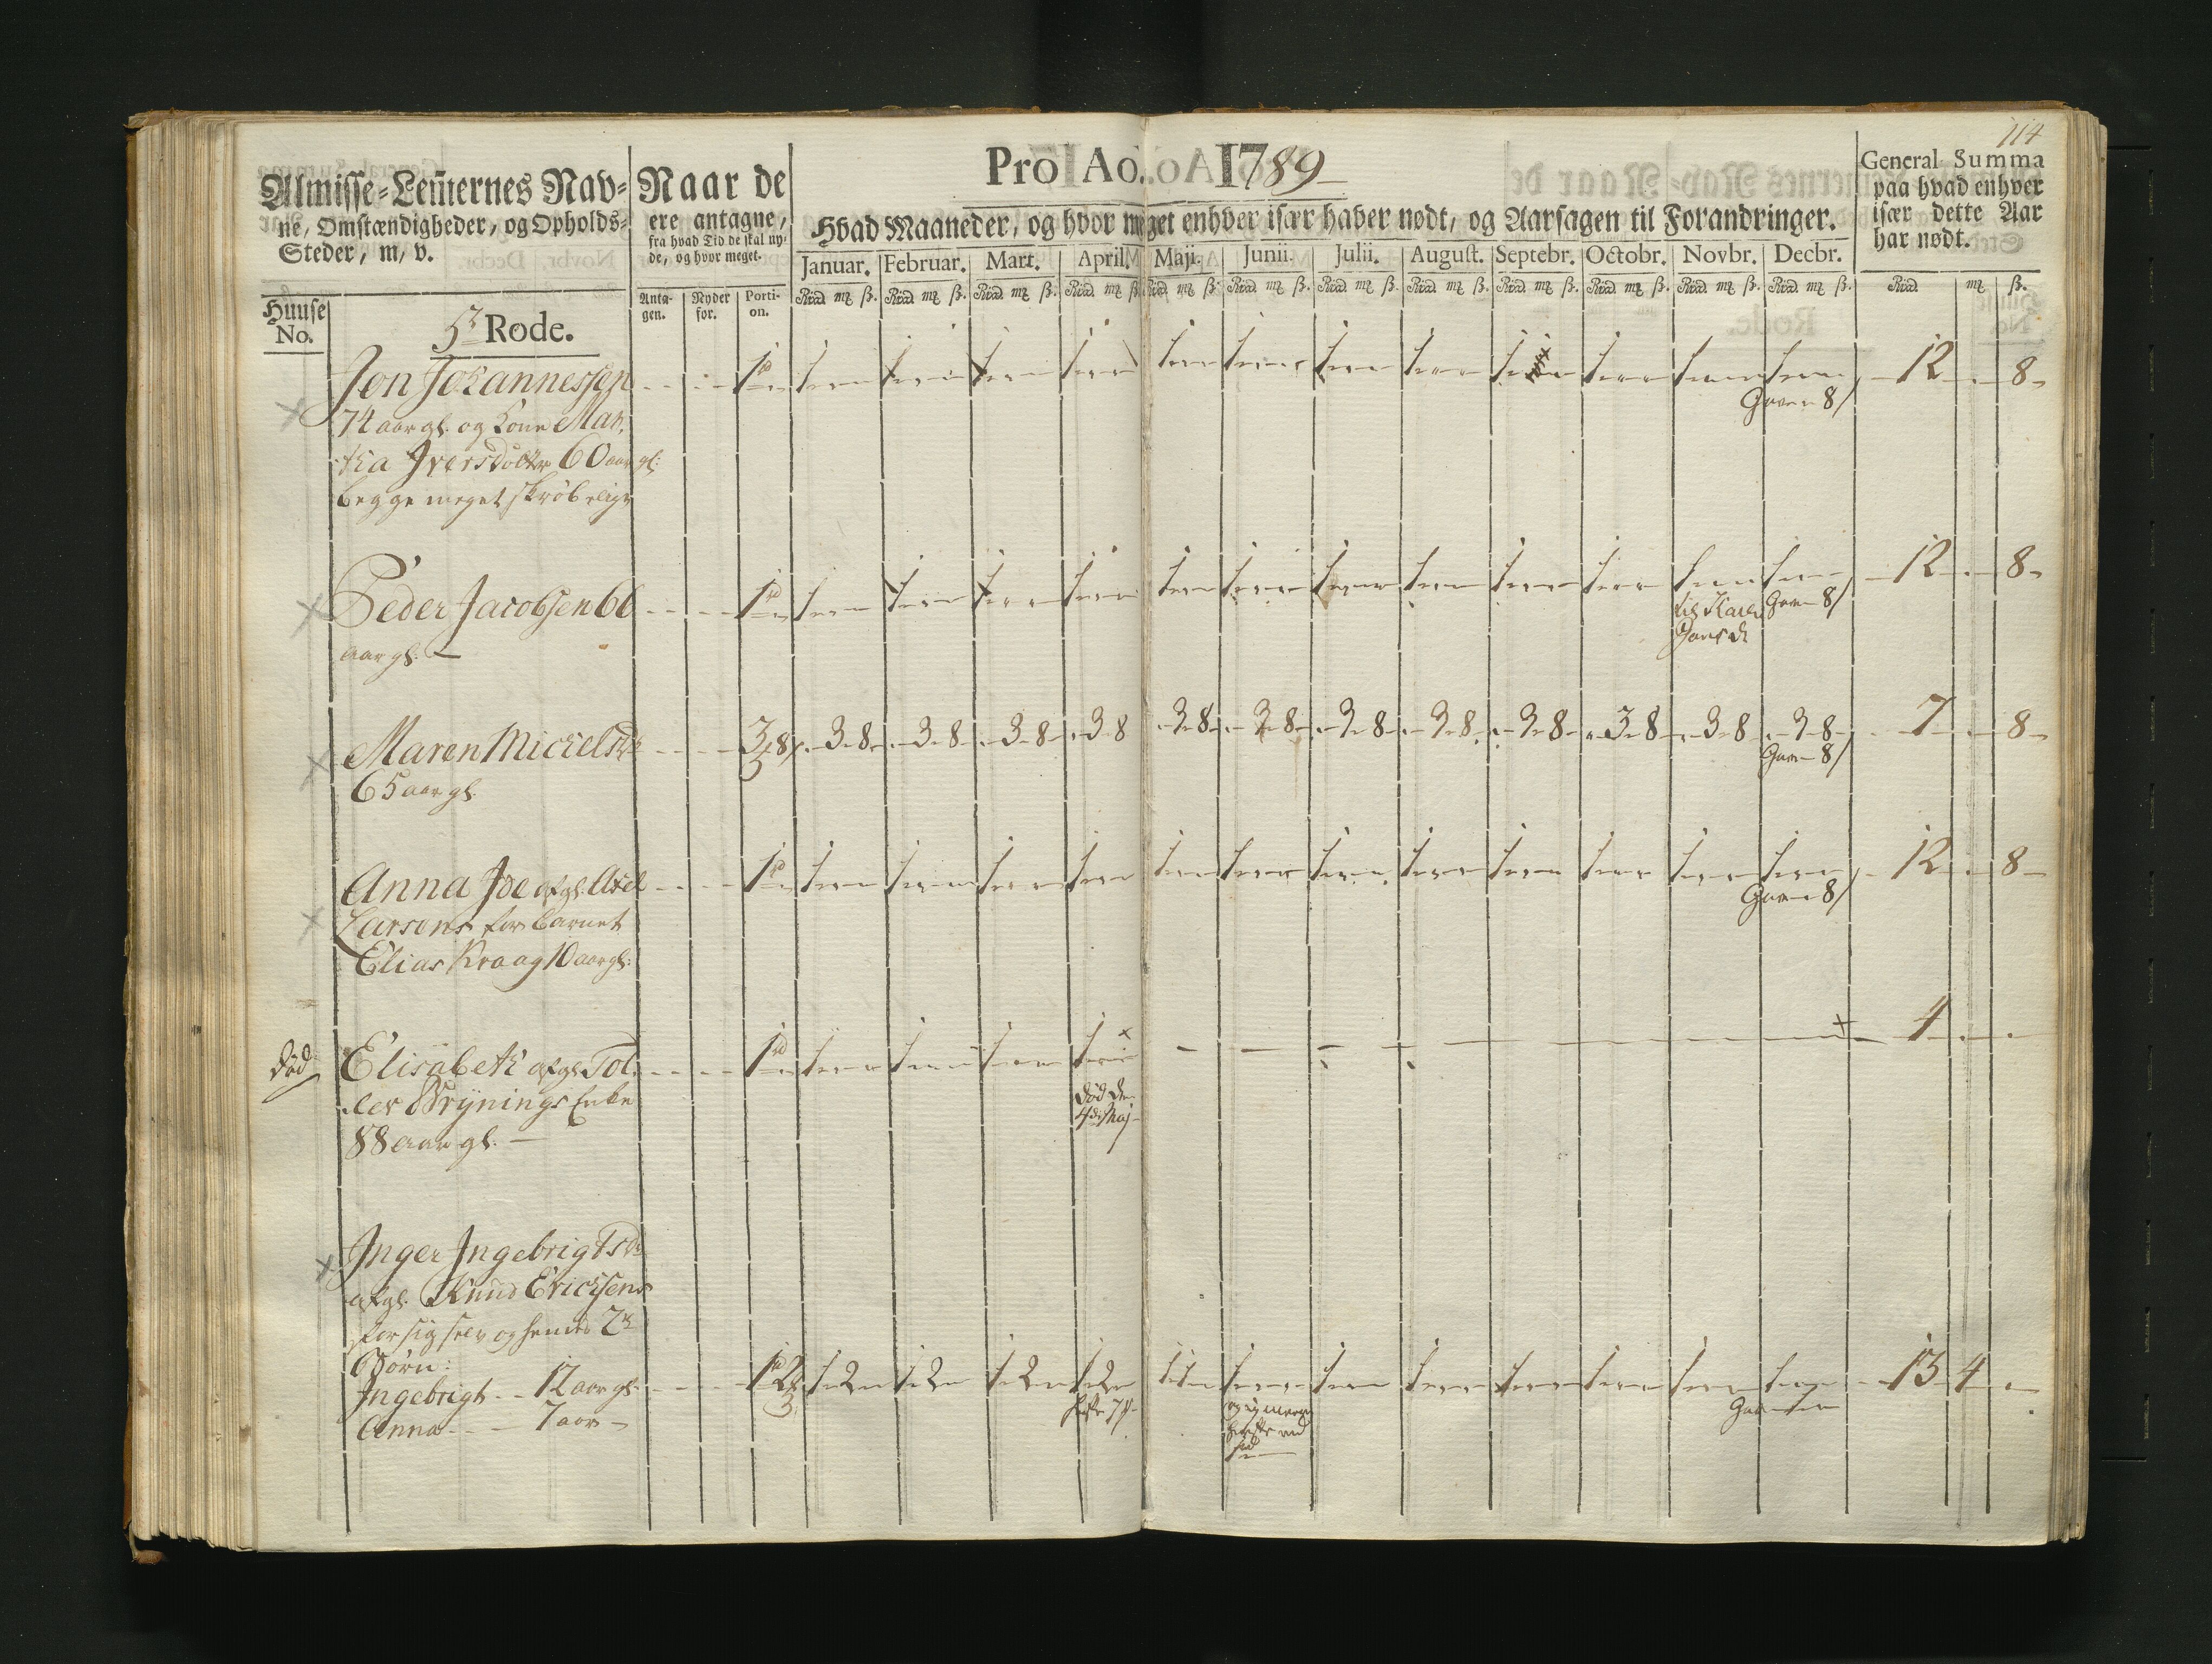 114
Pro Ao. 1789
Almisse-Lem̄ernes Nav-
ne, Omstændigheder, og Opholds-
Steder, m, v.
Naar de
ere antagne,
fra hvad Tid de skal ny-
de, og hvor meget.
Hvad Maaneder, og hvor meget enhver især haver nødt, og Aarsagen til Forandringer.
General Summa
paa hvad enhver
især dette Aar
har nødt.
Januar. Februar. Mart. April. Maji. Junii. Julii. August. Septebr. Octobr. Novbr. Decbr.
Huuse No.
5te Rode.
Anta- gen. Nyder for. Porti- on.
Rixd mk ß. Rixd mk ß. Rixd mk ß. Rixd mk ß. Rixd mk ß. Rixd mk ß. Rixd mk ß. Rixd mk ß. Rixd mk ß. Rixd mk ß. Rixd mk ß. Rixd mk ß. Rixd mk ß.
Jon Johannessen 1 1 1 1 1 1 1 1 1 1 1 1 1 12 8
Gave 8
74 aar gl. og Kone Mar,
tha Iversdotter 60 aar gl:
begge meget skrøbelige
Peder Jacobsen 66 1 1 1 1 1 1 1 1 1 1 1 1 1 12 8
til Karen Gave 8
aar gl.
Maren Michelsdr 3 8 3 8 3 8 3 8 3 8 3 8 3 8 3 8 3 8 3 8 3 8 3 8 3 8 7 8
Gave 8
65 aar gl.
Anna Joe afgl. Axel 1 1 1 1 1 1 1 1 1 1 1 1 1 12 8
Gave 8
Larsens for barnet
Elias Kraag 10 aar gl:
død Elisabeth afgl. Tol: 1 1 1 1 1 4
død den
4de Maj
ler Brynings Enke
88 aar gl.
Inger Ingebrigtsdr
afgl. Knud Ericksens
for sig selv og hendes 2de
Børn:
Ingebrigt 12 aar gl. 1 2 1 2 1 2 1 2 1 2 1 1 1 1 1 1 1 1 13 4
Anna 7 aar